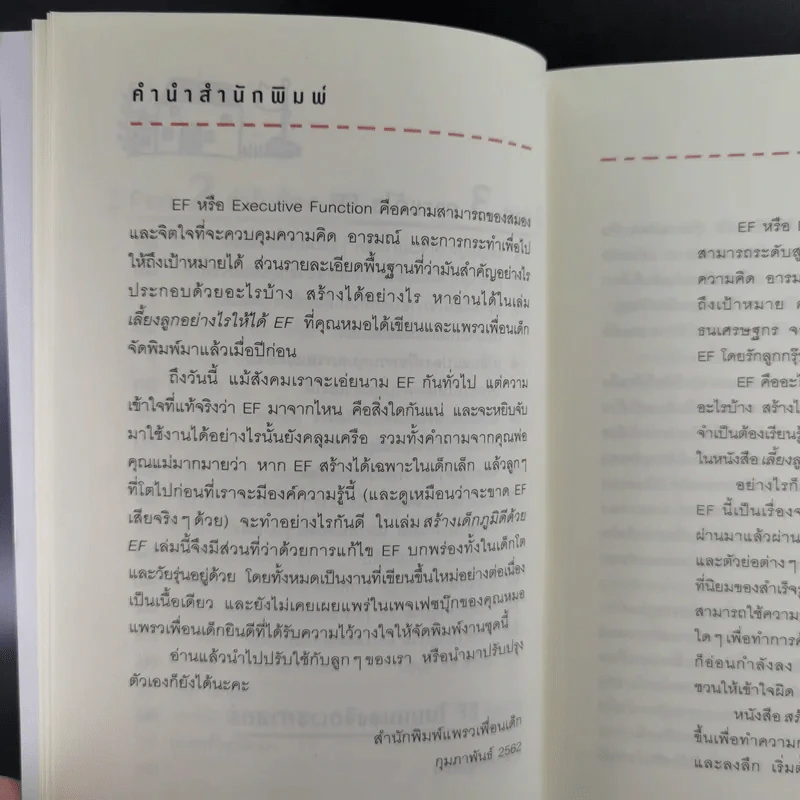 คำนำสำนักพิมพ์
EF หรือ Executive Function คือความสามารถของสมอง
และจิตใจที่จะควบคุมความคิด อารมณ์ และการกระทำเพื่อไป
ให้ถึงเป้าหมายได้ ส่วนรายละเอียดพื้นฐานที่ว่ามันสำคัญอย่างไร
ประกอบด้วยอะไรบ้าง สร้างได้อย่างไร หาอ่านได้ในเล่ม
เลี้ยงลูกอย่างไรให้ได้ EF ที่คุณหมอได้เขียนและแพรวเพื่อนเด็ก
จัดพิมพ์มาแล้วเมื่อปีก่อน
ถึงวันนี้ แม้สังคมเราจะเอ่ยนาม EF กันทั่วไป แต่ความ
เข้าใจที่แท้จริงว่า EF มาจากไหน คือสิ่งใดกันแน่ และจะหยิบจับ
มาใช้งานได้อย่างไรนั้นยังคลุมเครือ รวมทั้งคำถามจากคุณพ่อ
คุณแม่มากมายว่า หาก EF สร้างได้เฉพาะในเด็กเล็ก แล้วลูกๆ
ที่โตไปก่อนที่เราจะมีองค์ความรู้นี้ (และดูเหมือนว่าจะขาด EF
เสียจริงๆ ด้วย) จะทำอย่างไรกันดี ในเล่ม สร้างเด็กภูมิดีด้วย
EF เล่มนี้จึงมีส่วนที่ว่าด้วยการแก้ไข EF บกพร่องทั้งในเด็กโต
และวัยรุ่นอยู่ด้วย โดยทั้งหมดเป็นงานที่เขียนขึ้นใหม่อย่างต่อเนื่อง
เป็นเนื้อเดียว และยังไม่เคยเผยแพร่ในเพจเฟซบุ๊กของคุณหมอ
แพรวเพื่อนเด็กยินดีที่ได้รับความไว้วางใจให้จัดพิมพ์งานชุดนี้
อ่านแล้วนำไปปรับใช้กับลูกๆ ของเรา หรือนำมาปรับปรุง
ตัวเองก็ยังได้นะคะ
สำนักพิมพ์แพรวเพื่อนเด็ก
กุมภาพันธ์ 2562
EF หรือ
สามารถระดับ
ความคิด
ถึงเป้าหมาย
ธนเศรษฐกร
EF โดยรักลูกกรุ๊
EF คืออะไ
อะไรบ้าง สร้างไ
จำเป็นต้องเรียนรู้
ในหนังสือ เลี้ยงลู
อย่างไรก็
EF นี้เป็นเรื่อง
ผ่านมาแล้วผ่าน
และตัวย่อต่างๆ
ที่นิยมของสำเร็จรู
สามารถใช้ความ
ใดๆ เพื่อทำการ
ก็อ่อนกำลังลง
ชวนให้เข้าใจผิด
หนังสือ
ขึ้นเพื่อทำความ
และลงลึก เริ่ม